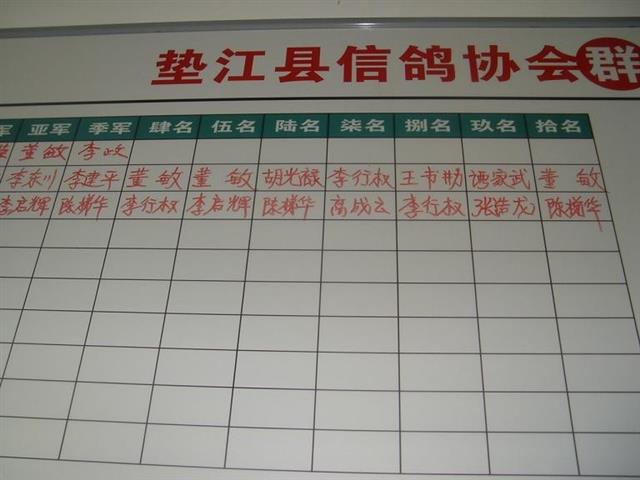 垫江县信鸽协会群
军 亚军 季军 肆名 伍名 陆名 柒名 捌名 玖名 拾名
董敏 李政
李东川 李建平 董敏 董敏 胡光禄 李行权 王市勋 谭家武 董敏
李启辉 陈娣华 李行权 李启辉 陈娣华 高战云 李行权 张浩龙 陈娣华